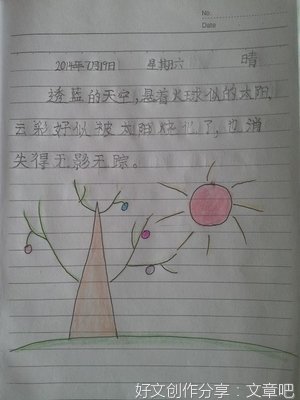 No.
Date
2014年7月19日 星期六 晴
透蓝的天空，悬着火球似的太阳，
云彩好似被太阳烧化了，也消
失得无影无踪。
好文创作分享：文章吧